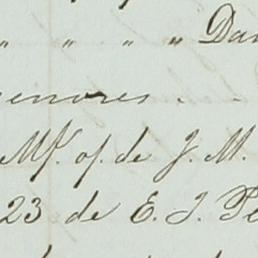 " " " " Dan
enores . .
Mf. of. de J. M.
23 de E. J. Pe